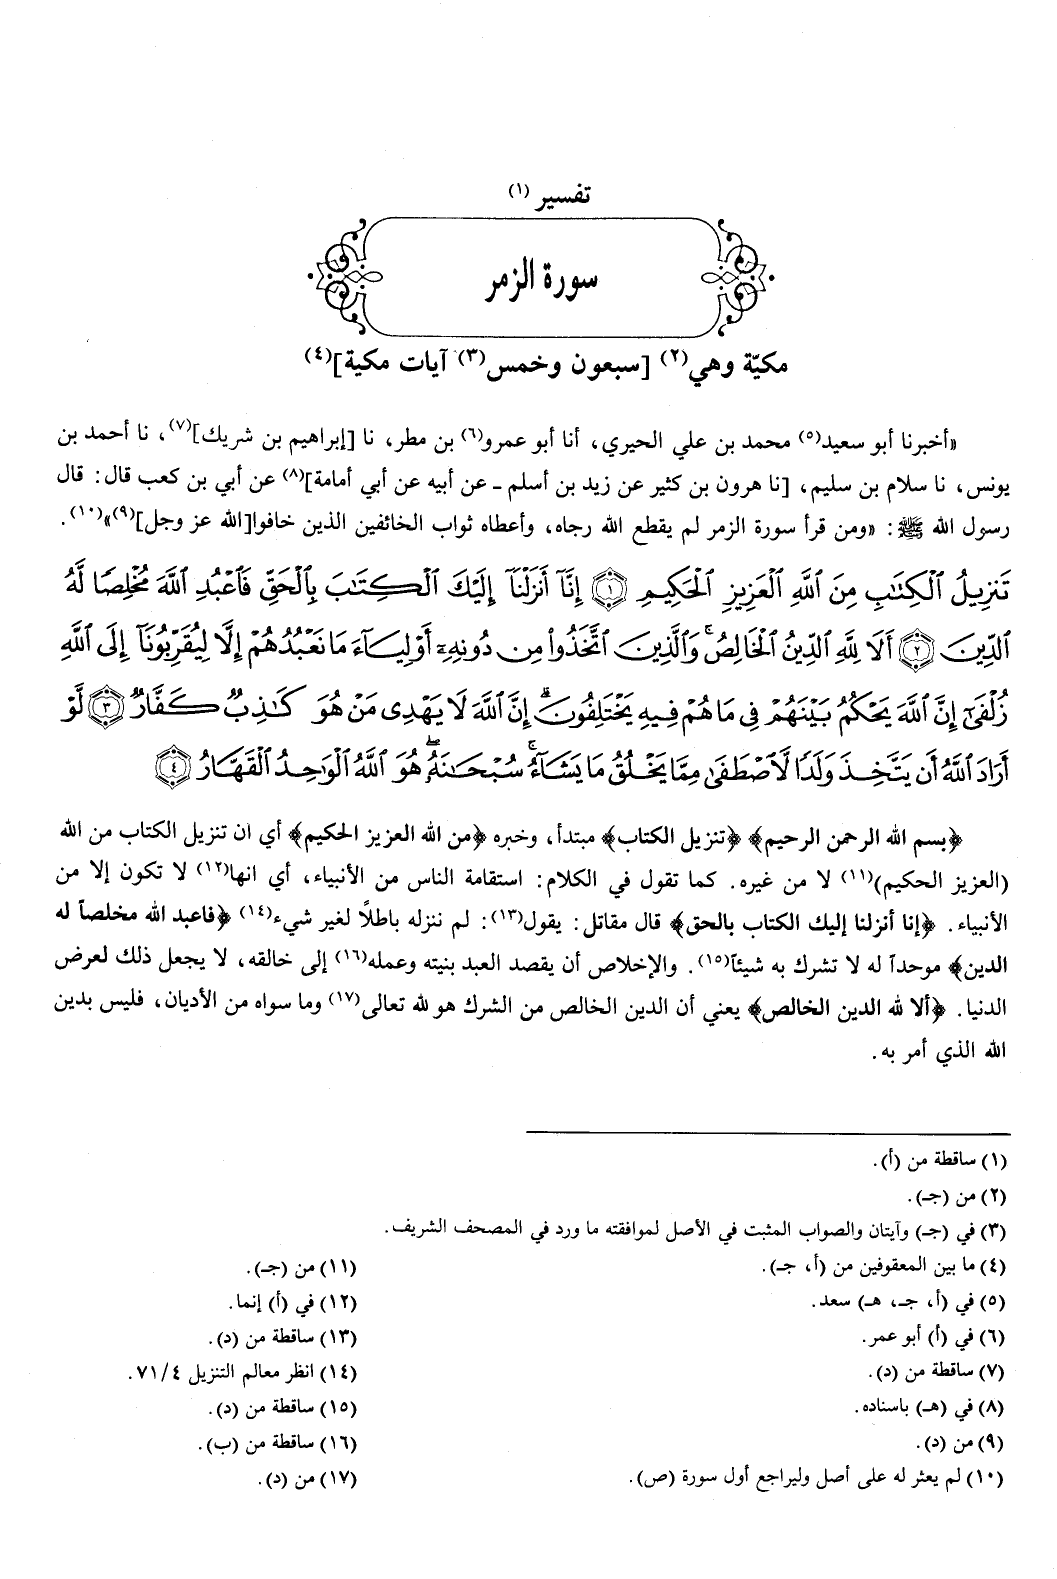 تفسير (١)
سورة الزمر
مكيّة وهي(٢) [سبعون وخمس(٣) آيات مكية](٤)
«أخبرنا أبو سعيد(٥) محمد بن علي الحيري، أنا أبو عمرو(٦) بن مطر، نا [إبراهيم بن شريك](٧)، نا أحمد بن
يونس، نا سلام بن سليم، [نا هرون بن كثير عن زيد بن أسلم ـ عن أبيه عن أبي أمامة](٨) عن أبي بن كعب قال: قال
رسول الله ﷺ: «ومن قرأ سورة الزمر لم يقطع الله رجاه، وأعطاه ثواب الخائفين الذين خافوا[الله عز وجل](٩)»(١٠).
تَنزِيلُ ٱلْكِتَٰبِ مِنَ ٱللَّهِ ٱلْعَزِيزِ ٱلْحَكِيمِ ١ إِنَّآ أَنزَلْنَآ إِلَيْكَ ٱلْكِتَٰبَ بِٱلْحَقِّ فَٱعْبُدِ ٱللَّهَ مُخْلِصًا لَّهُ
ٱلدِّينَ ٢ أَلَا لِلَّهِ ٱلدِّينُ ٱلْخَالِصُ ۚ وَٱلَّذِينَ ٱتَّخَذُوا۟ مِن دُونِهِۦٓ أَوْلِيَآءَ مَا نَعْبُدُهُمْ إِلَّا لِيُقَرِّبُونَآ إِلَى ٱللَّهِ
زُلْفَىٰٓ إِنَّ ٱللَّهَ يَحْكُمُ بَيْنَهُمْ فِى مَا هُمْ فِيهِ يَخْتَلِفُونَ ۗ إِنَّ ٱللَّهَ لَا يَهْدِى مَنْ هُوَ كَٰذِبٌ كَفَّارٌ ٣ لَّوْ
أَرَادَ ٱللَّهُ أَن يَتَّخِذَ وَلَدًا لَّٱصْطَفَىٰ مِمَّا يَخْلُقُ مَا يَشَآءُ ۚ سُبْحَٰنَهُۥ ۖ هُوَ ٱللَّهُ ٱلْوَٰحِدُ ٱلْقَهَّارُ ٤
﴿بسم الله الرحمن الرحيم﴾ ﴿تنزيل الكتاب﴾ مبتدأ، وخبره ﴿من الله العزيز الحكيم﴾ أي ان تنزيل الكتاب من الله
(العزيز الحكيم)(١١) لا من غيره. كما تقول في الكلام: استقامة الناس من الأنبياء، أي انها(١٢) لا تكون إلا من
الأنبياء. ﴿إنا أنزلنا إليك الكتاب بالحق﴾ قال مقاتل: يقول(١٣): لم ننزله باطلاً لغير شيء(١٤) ﴿فاعبد الله مخلصاً له
الدين﴾ موحداً له لا تشرك به شيئاً(١٥). والإخلاص أن يقصد العبد بنيته وعمله(١٦) إلى خالقه، لا يجعل ذلك لعرض
الدنيا. ﴿ألا لله الدين الخالص﴾ يعني أن الدين الخالص من الشرك هو لله تعالى(١٧) وما سواه من الأديان، فليس بدين
الله الذي أمر به.
(١) ساقطة من (أ).
(٢) من (جـ).
(٣) في (جـ) وآيتان والصواب المثبت في الأصل لموافقته ما ورد في المصحف الشريف.
(٤) ما بين المعقوفين من (أ، جـ).
(٥) في (أ، جـ، هـ) سعد.
(٦) في (أ) أبو عمر.
(٧) ساقطة من (د).
(٨) في (هـ) باسناده.
(٩) من (د).
(١٠) لم يعثر له على أصل وليراجع أول سورة (ص).
(١١) من (جـ).
(١٢) في (أ) إنما.
(١٣) ساقطة من (د).
(١٤) انظر معالم التنزيل ٧١/٤.
(١٥) ساقطة من (د).
(١٦) ساقطة من (ب).
(١٧) من (د).